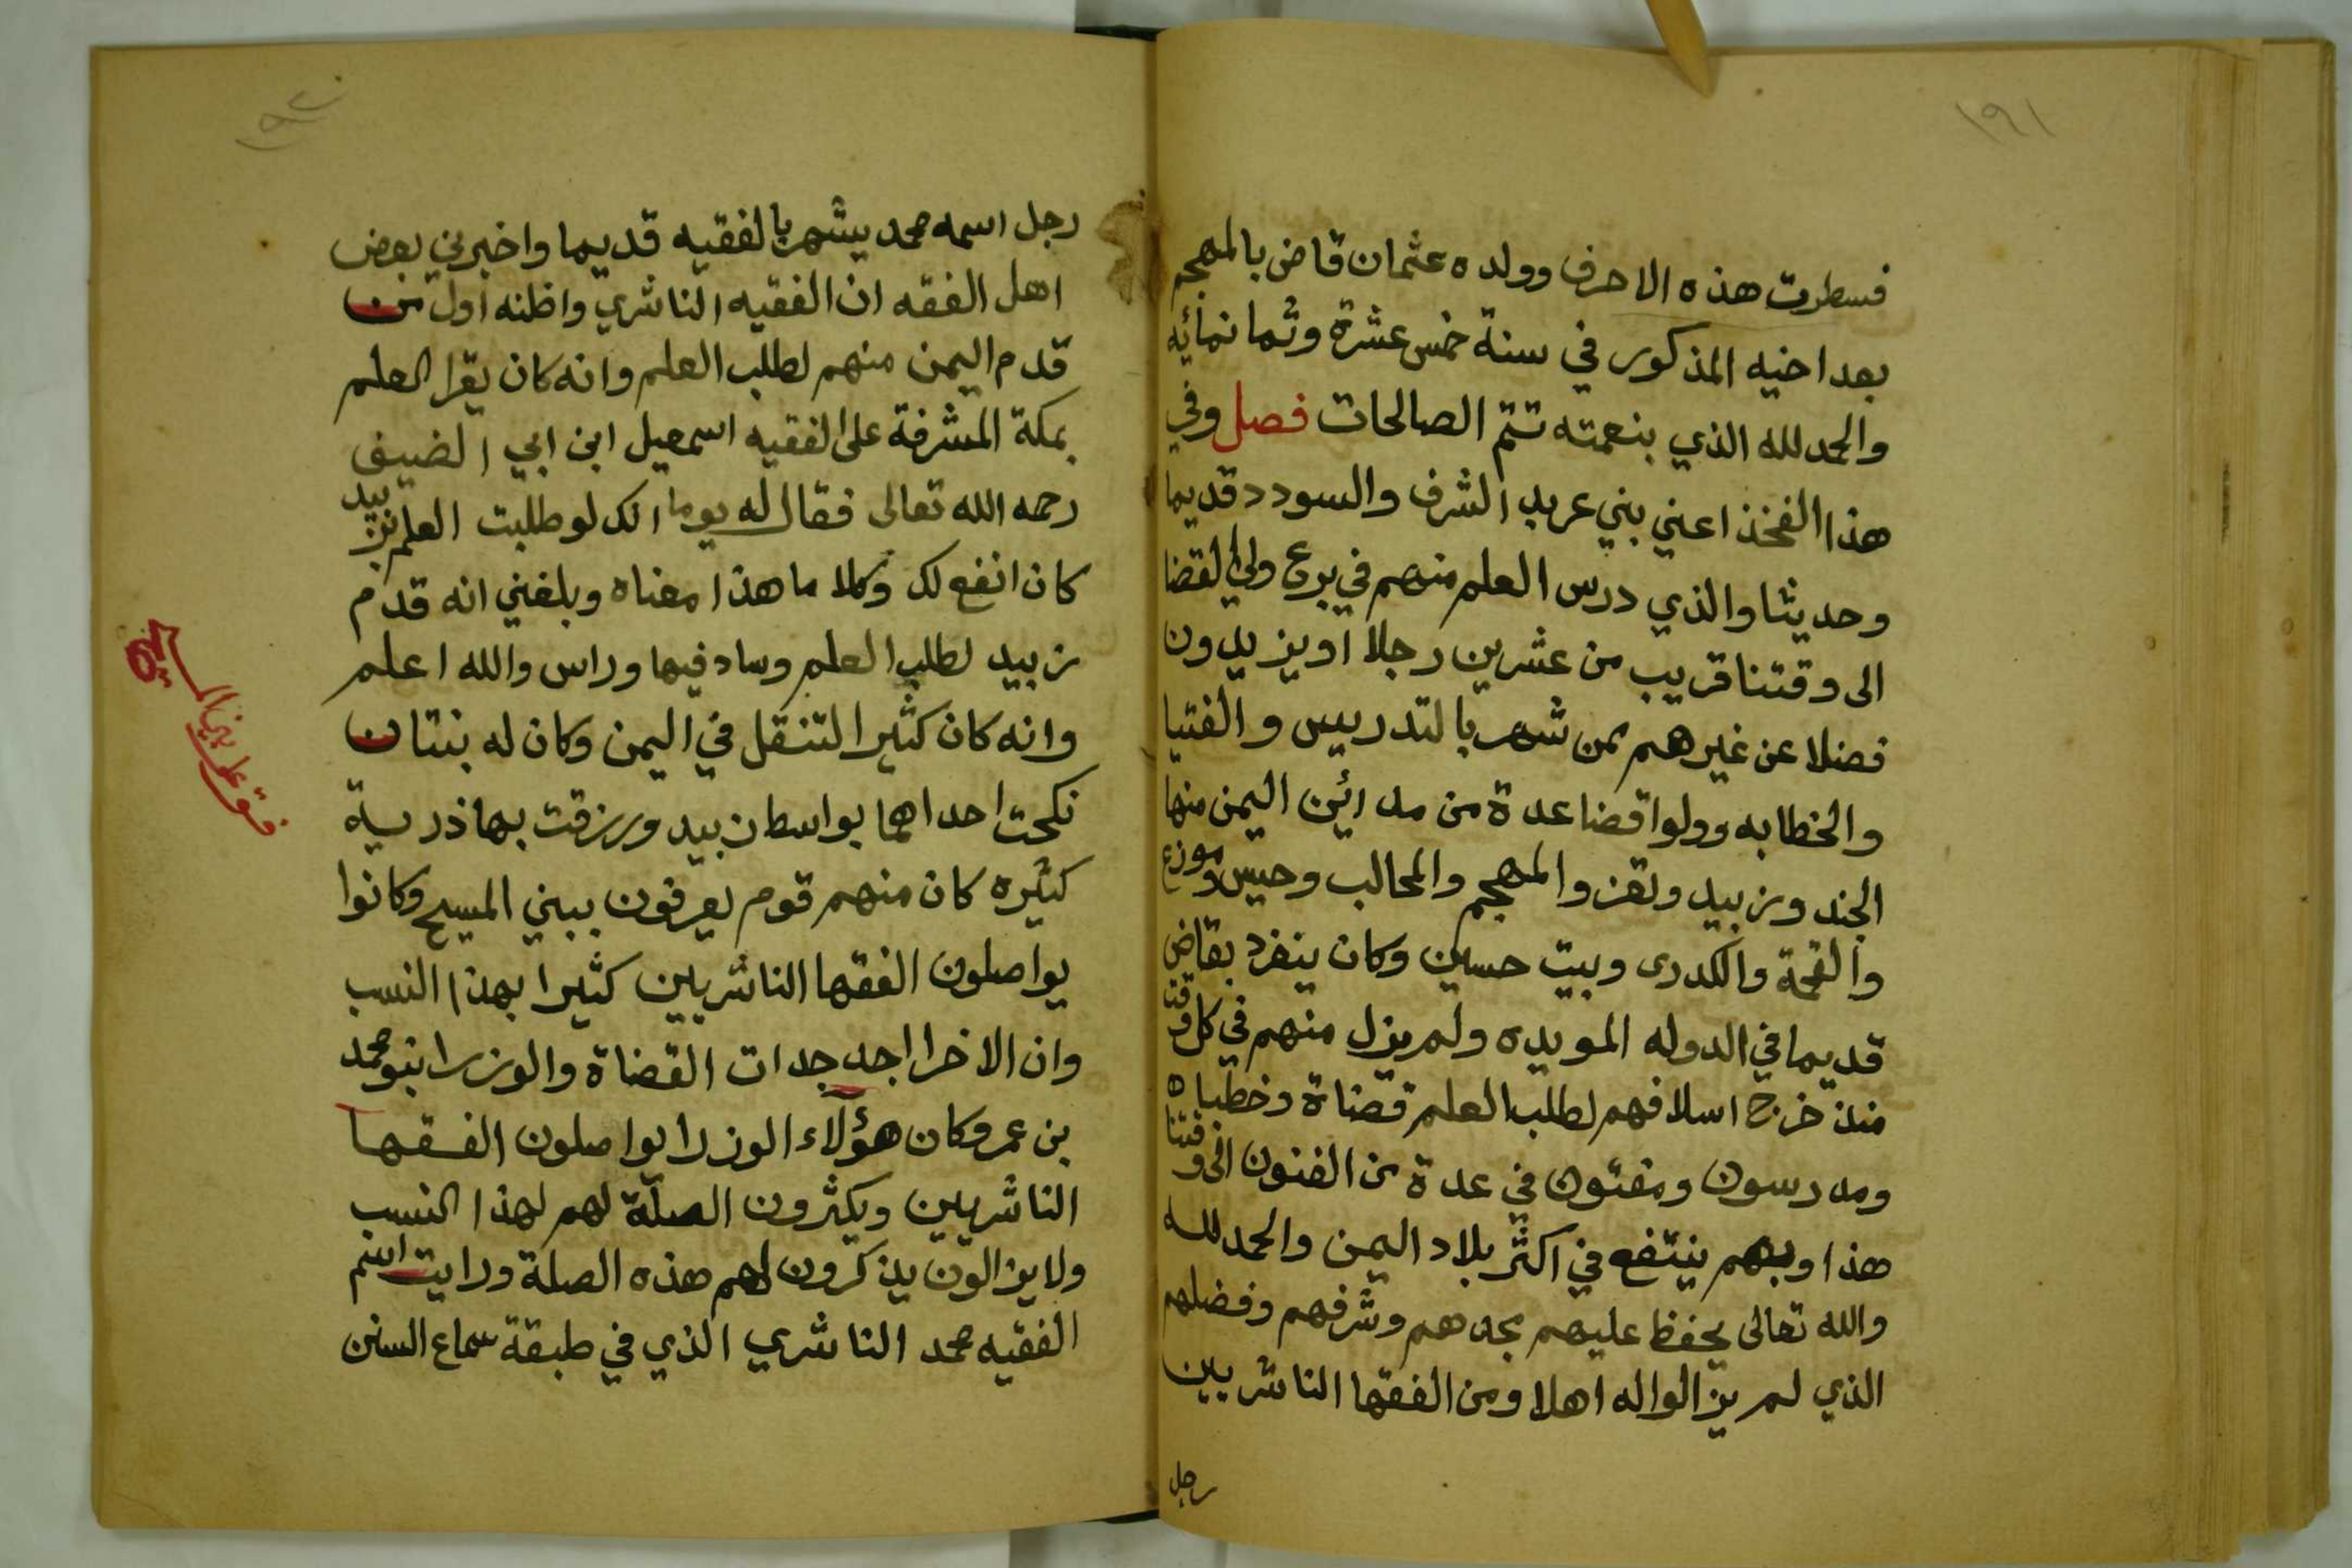 ١٩١
فسطرت هذه الاحرف وولده عثمان قاض بالمهجم
بعد اخيه المذكور في سنة خمس عشرة وثمانمائيه
والحمد لله الذي بنعمته تتم الصالحات فصل وفي
هذا الفخذ اعني بني عريد الشرف والسودد قديما
وحديثا والذي درس العلم منهم في برع ولي القضا
الى وقتنا قريب من عشرين رجلا او يزيدون
فضلا عن غيرهم ممن شهر بالتدريس والفتيا
والخطابه وولوا قضا عدة من مدائين اليمن منها
الجند وزبيد وتعز والمهجم والمحالب وحيس وموزع
والقحمة والكدرى وبيت حسين وكان ينفرد بقاض
قديما في الدوله المويده ولم يزل منهم في كل وقت
منذ خرج اسلافهم لطلب العلم قضاة وخطباه
ومدرسون ومفتون في عدة من الفنون الى وقتنا
هذا وبهم ينتفع في اكثر بلاد اليمن والحمد لله
والله تعالى يحفظ عليهم مجدهم وشرفهم وفضلهم
الذي لم يزالوا له اهلا ومن الفقها الناشريين
رجل
١٩٢
رجل اسمه محمد يشهر بالفقيه قديما واخبرني بعض
اهل الفقه ان الفقيه الناشري واظنه اول من
قدم اليمن منهم لطلب العلم وانه كان يقرا العلم
بمكة المشرفة على الفقيه اسمعيل ابن ابي الضيف
رحمه الله تعالى فقال له يوما انك لو طلبت العلم بزبيد
كان انفع لك وكلاما هذا معناه وبلغني انه قدم
زبيد لطلب العلم وساد فيها وراس والله اعلم
وانه كان كثير التنقل في اليمن وكان له بنتان
نكحت احداهما بواسط زبيد ورزقت بها ذريية
كثيره كان منهم قوم يعرفون ببني المسيح وكانوا
يواصلون الفقها الناشريين كثيرا بهذا النسب
وان الاخرا احد جدات القضاة والوزرا بنو محمد
بن عمر وكان هؤلاء الوزرا يواصلون الفقها
الناشريين ويكثرون الصلة لهم لهذا النسب
ولا يزالون يذكرون لهم هذه الصلة ورايت اسم
الفقيه محمد الناشري الذي في طبقة سماع السنن